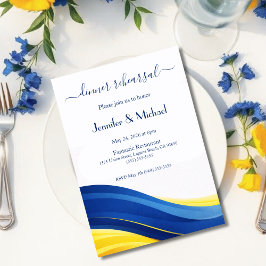 dinner rehearsal
Please join us to honor
Jennifer & Michael
May 24, 2026 at 6pm
Fantastic Restaurant